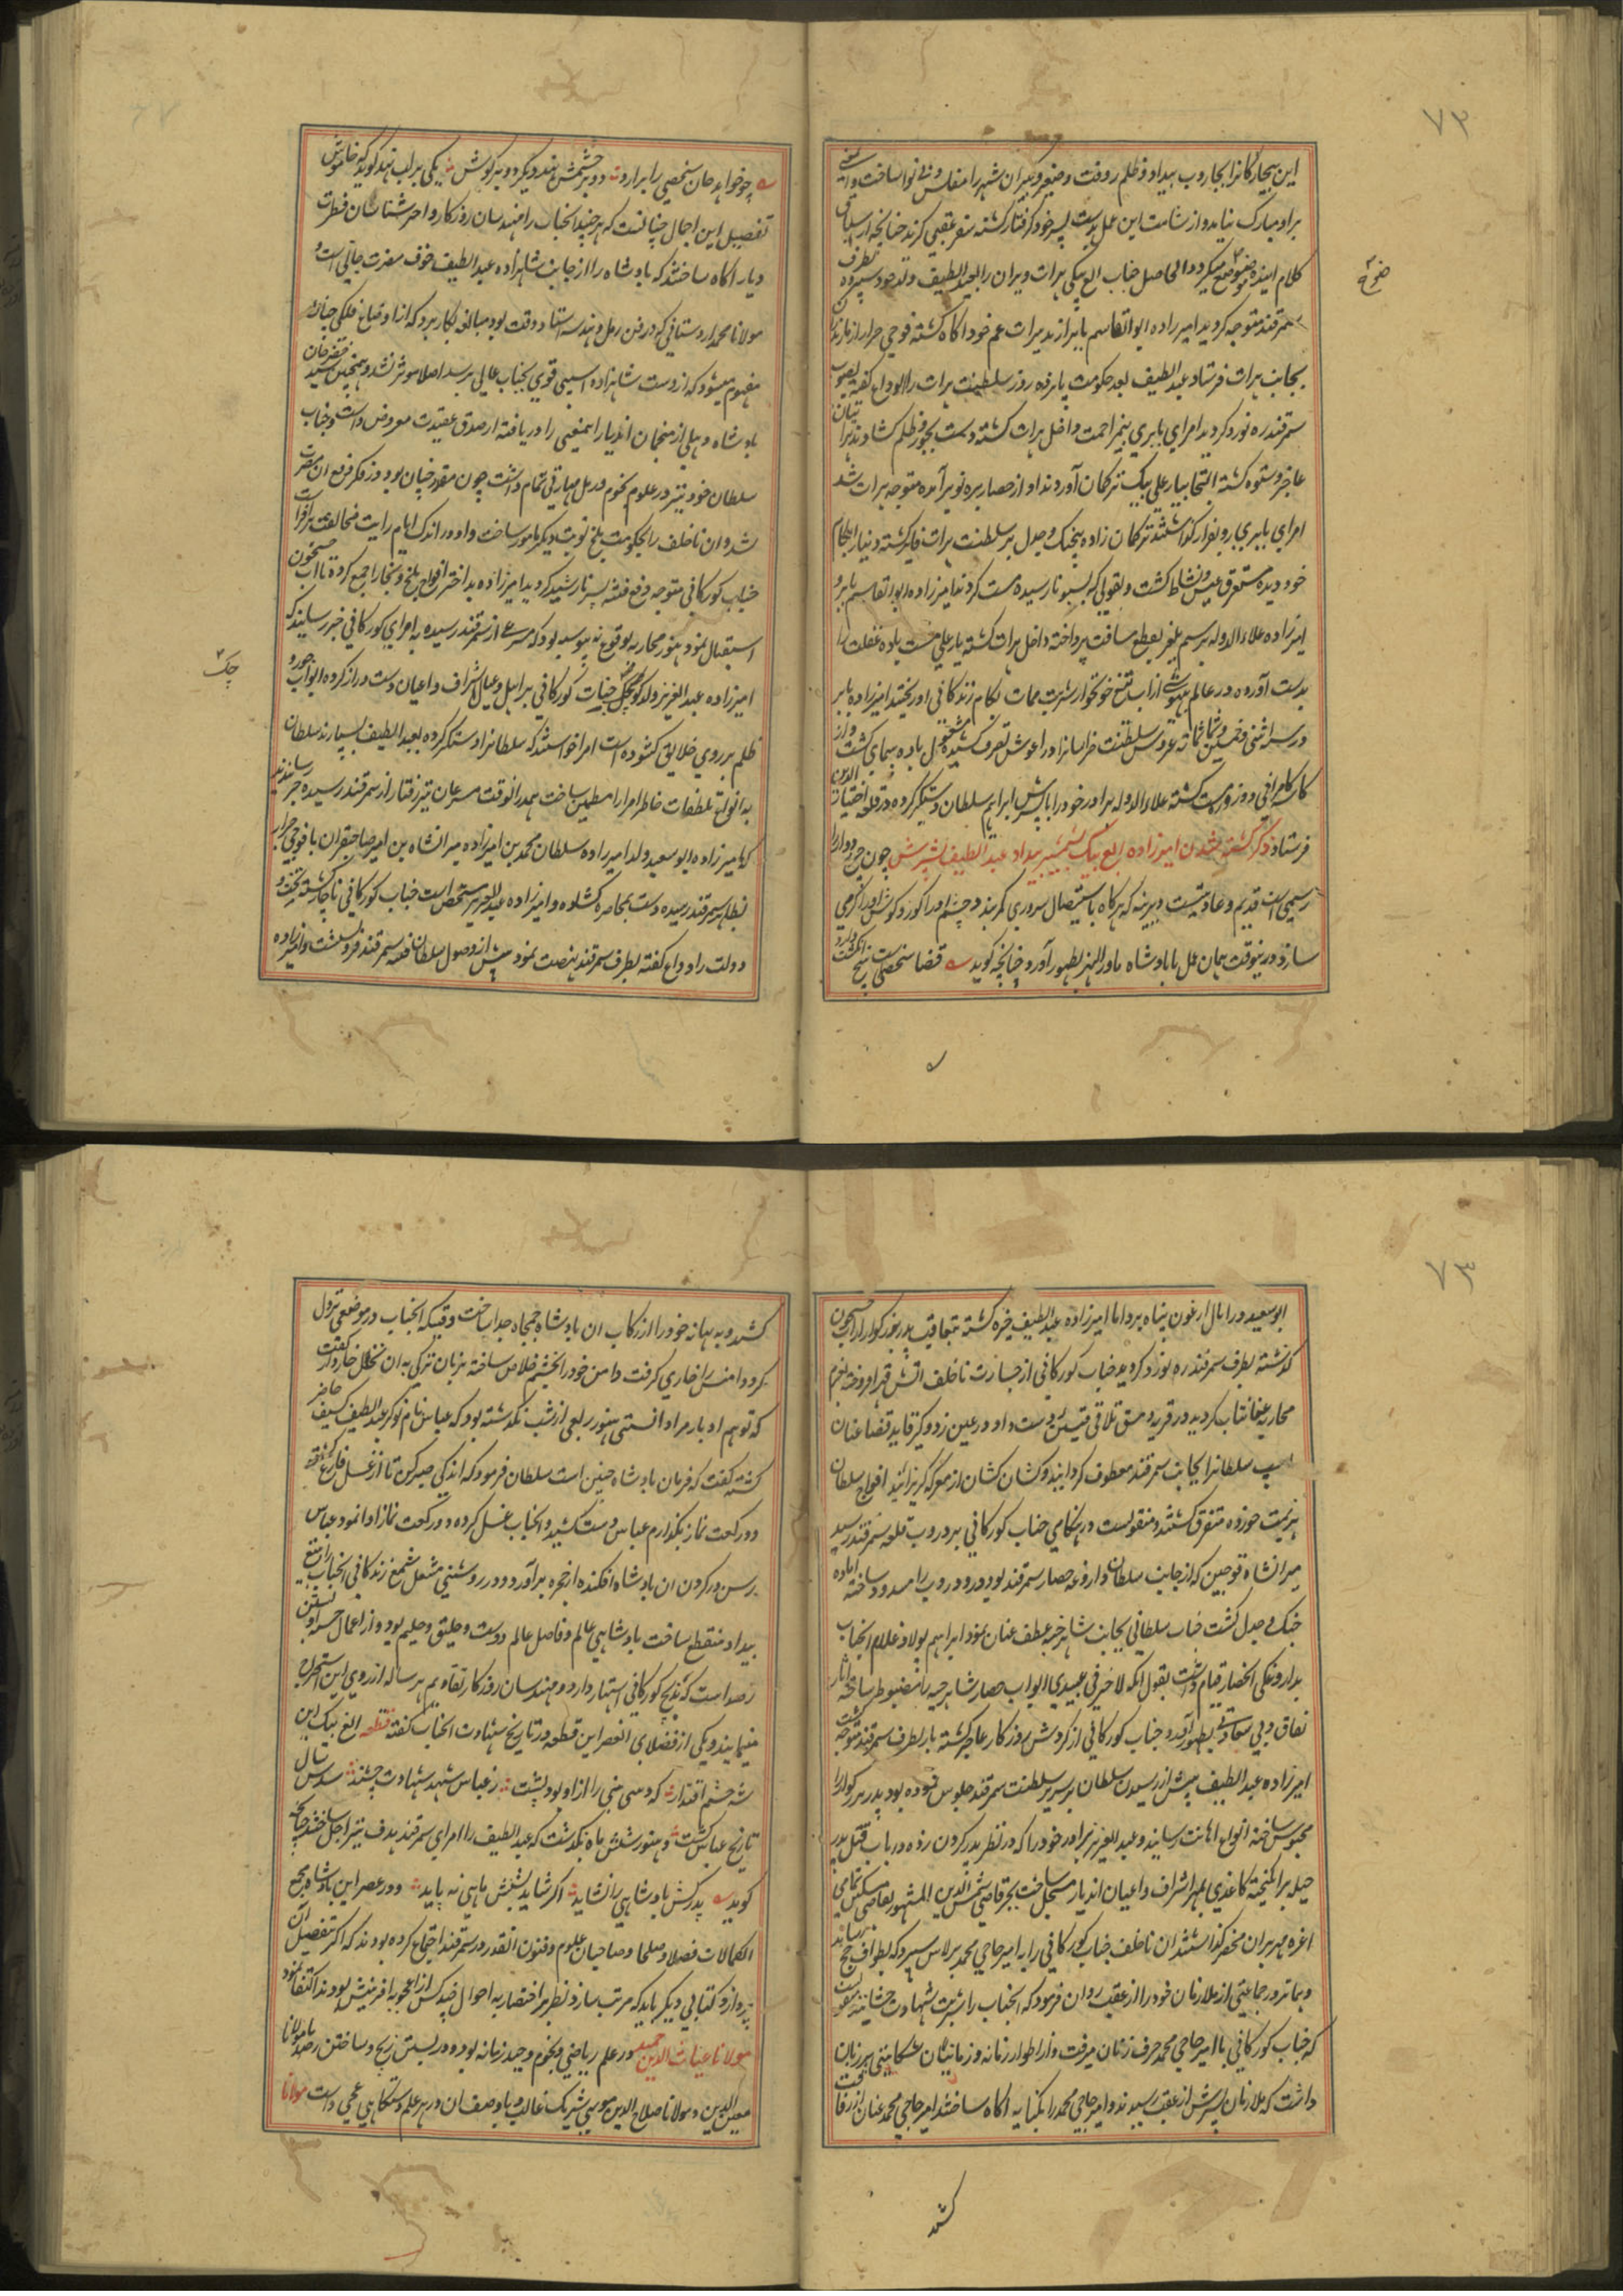 ۷۳
این بیچارکانرا بجاروب بیداد و ظلم روفت و صغیر و کبیر ان شهر را مفلس و بی نوا ساخت و این معنی
براو مبارک نیامد و از شامت این عمل بدست پسر خود کرفتار کشته سفر عقبی کزید چنانچه از سیاق
کلام اینده بوضوح میکردد الحاصل جناب الغ بیکی هرات ویران را بعبد اللطیف ولد خود سپرده بطرف
سمرقند متوجه کردید امیرزاده ابوالقاسم بابر از تدبیرات عم خود اکاه کشته فوجی جرار از مازندران
بجانب هرات فرستاد عبد اللطیف بعد حکومت پانزده روز سلطنت هرات را الوداع کفته بصوب
سمرقند ره نورد کردید امرای بابری بیمزاحمت داخل هرات کشته دست بجور و ظلم کشادند هراتیان
عاجز و ستوه کشته التجا بیار علی بیک ترکمان آوردند او از حصار بره تو برآمده متوجه هرات شد
امرای بابیری رو بفرار کذاشتند ترکمان زاده بیجنک و جدل بر سلطنت هرات فایز کشته دنیا را بکام
خود دیده مستغرق عیش و نشاط کشت و بقولی که بسبو نارسیده مست کردند امیرزاده ابوالقاسم بابر و
امیرزاده علاء الدوله برسم یلغر بقطع مسافت پرداخته داخل هرات کشته یار علی مست باده غفلت را
بدست آورده در عالم بیهوشی از اب تیغ خونخوار شربت ممات بکام زندکانی او ریختند امیرزاده بابر
در سنه اثنی و خمسین و ثمانمائه عروس سلطنت خراسانرا در اغوش تصرف کشیده مشغول باده پیمای کشت و از
کاسه کامرانی دو روزه مست کشته علاء الدوله برادر خود را با پسرش ابراهیم سلطان دستکیر کرده در قلعه اختیار الدین
فرستاد ذکر کشته شدن امیرزاده الغ بیک بشمشیر بیداد عبد اللطیف پسرش چون چرخ دوار را
رسمی است قدیم و عادتیست دیرینه که هرکاه باستیصال سروری کمر بندد چشم او را کور و کوش او را کر می
سازد درینوقت همان عمل با بادشاه ماورالنهر بظهور آورد چنانچه کوید قضا شخصیست پنج انکشت دارد
صح
چو خواهد جان شخصی را برارد دو بر چشمش نهد دیکر دو بر کوش یکی بر لب نهد کوید که خاموش
تفصیل این اجمال چنانست که هر چند انجناب را مهندسان روزکار و اختر شناسان فطرت
دیار اکاه ساختند که بادشاه را از جانب شاهزاده عبد اللطیف خوف مضرت جانی است و
مولانا محمد اردستانی که در فن رمل و هندسه استاد وقت بود مبالغه بکار برد که از اوضاع فلکی چنان
مفهوم میشود که از دست شاهزاده اسیبی قوی بجناب عالی برسد اصلا موثر نشد و همچنین سید خضر خان
بادشاه دهلی از منجمان اندیار اینمعنی را دریافته از صدق عقیدت معروض داشت و جناب
سلطان خود نیز در علوم نجوم و رمل مهارتی تمام داشت چون مقدر چنان بود در فکر فرع ان مضرت
شد و ان ناخلف را بحکومت بلخ نوبت دیکر مامور ساخت و او در اندک ایام رایت مخالفت برافراخت
جناب کورکانی متوجه دفع فتنه پسر نارشید کردید امیرزاده بد اختر افواج بلخ و بخارا جمع کرده تا اب جیحون
استقبال نمود هنوز محاربه بوقوع نه پیوسته بود که مسرعی از سمرقند رسیده به امرای کورکانی خبر رسانید که
امیرزاده عبد العزیز ولد کوچک جناب کورکانی بر اهل و عیال اشراف و اعیان دست دراز کرده ابواب جور و
ظلم بر روی خلایق کشوده است امرا خواستند که سلطانرا دستکیر کرده بعبد اللطیف بسپارند سلطان
بانواع تلطفات خاطر امرا را مطمین ساخت همدرانوقت مسرعان تیز رفتار از سمرقند رسیده خبر رسانیدند
که امیرزاده ابو سعید ولد امیرزاده سلطان محمد بن امیرزاده میرانشاه بن امیر صاحبقران با فوجی جرار
بظاهر سمرقند رسیده دست بمحاصره کشاده و امیرزاده عبد العزیز متحصن است جناب کورکانی ناچار کشته تخت و
دولت را وداع کفته بطرف سمرقند نهضت نمود پیش از وصول سلطان فتنه سمرقند فرو نشست و امیرزاده
چک
۷۳
ابو سعید در ایال ارغون پناه برد اما امیرزاده عبد اللطیف خیره کشته بتعاقب پدر بزرکوار از اب جیحون
کذشته بطرف سمرقند ره نورد کردید جناب کورکانی از جسارت ناخلف اتش قهر افروخته بعزم
محاربه عنانتاب کردیده در قریه دمشق تلاقی فئتین دست داد و در عین زد و کیر قاید قضا عنان
اسپ سلطانرا بجانب سمرقند معطوف کردانید و کشان کشان از معرکه کریزانید افواج سلطان
هزیمت خورده متفرق کشتند منقولست در هنکامی جناب کورکانی بر دروب قلعه سمرقند رسید
میرانشاه قوجین که از جانب سلطان داروغه حصار سمرقند بود در و دروب را مسدود ساخته اماده
جنک و جدل کشت جناب سلطانی بجانب شاهرخیه عطف عنان نمود ابراهیم پولاد غلام انجناب
بداروغکی انحصار قیام داشت بقول انکه لاخیر فی عبیدی ابواب حصار شاهرخیه را مضبوط ساخته اثار
نفاق و بی سعادتی بظهور آورد جناب کورکانی از کردش روزکار عاجز کشته باز بطرف سمرقند متوجه کشت
امیرزاده عبد اللطیف پیش از رسیدن سلطان بر سریر سلطنت سمرقند جلوس نموده بود پدر بزرکوار را
محبوس ساخته انواع اهانت رسانید و عبد العزیز برادر خود را که در نظر پدر کردن زده در باب قتل پدر
حیله برانکیخته کاغذی بمهر اشراف و اعیان اندیار مسجل ساخت بجز قاضی شمس الدین المشهور بقاضی مسکین تمامی
اعزه مهر بران محضر کذاشتند ان ناخلف جناب کورکانی را به امیر حاجی محمد برلاس سپرد که بطواف حج برساند
و بما تر در جماعتی از ملازمان خود را از عقب روان فرمود که انجناب را شربت شهادت چشانند منقولست
که جناب کورکانی با امیر حاجی محمد حرف زنان میرفت و از اطوار زمانه و زمانیان شکایتی بر زبان
داشت که ملازمان پسرش از عقب رسیدند و امیر حاجی محمد را بکنایه اکاه ساختند امیر حاجی محمد عنان از رفاقت
کشید
کشید و به بهانه خود را از رکاب ان بادشاه جمجاه جدا ساخت وقتیکه انجناب در موضعی نزول
کرد دامنش را خاری کرفت دامن خود را بخشم خلاص ساخته بزبان ترکی به ان نخل خاردار کفت
که تو هم ادبار مرا دانستی هنوز ربعی از شب نکذشته بود که عباس نام نوکر عبد اللطیف کسیف حاضر
کشته کفت که فرمان بادشاه چنین است سلطان فرمود که اندکی صبر کن تا از غسل فارغ کشته
دو رکعت نماز بکذارم عباس دست کشید و انجناب غسل کرده دو رکعت نماز ادا نمود عباس
رسن در کردن ان بادشاه افکنده از حجره برآورد و در روشنی مشعل شمع زندکانی انجناب را بتیغ
بیداد منقطع ساخت بادشاهی عالم و فاضل عالم دوست و خلیق و حلیم بود و از اعمال حسنه او بستن
رصد است که بزیج کورکانی اشتهار دارد و مهندسان روزکار تقاویم هر ساله از روی این استخراج
مینمایند و یکی از فضلای انعصر این قطعه در تاریخ شهادت انجناب کفته قطعه الغ بیک ابن
شه جشم اقتدار که دین نبی را از او بود پشت ز عباس شهد شهادت چشید شدش سال
تاریخ عباس کشت و هنوز شش ماه نکذشت که عبد اللطیف را امرای سمرقند هدف تیر اجل ساختند چنانچه
کوید پدر کش بادشاهی را نشاید اکر شاید بشش ماهی نه پاید و در عصر این بادشاه مجمع
الکمالات فضلا و صلحا و صاحبان علوم و فنون انقدر در سمرقند اجتماع کرده بودند که اکر بتفصیل آن
پردازد کتابی دیکر باید که مرتب سازد نظر بر اختصار به احوال چند کس از اعجوبه افرینش بودند اکتفا نمود
مولانا غیاث الدین جمشید در علم ریاضی و نجوم وحید زمانه بود و در بستن زیج و ساختن رصد با مولانا
معین الدین و مولانا صلاح الدین موسی شریک غالب با وصف ان در هر علم دستکاهی عجبی داشت مولانا